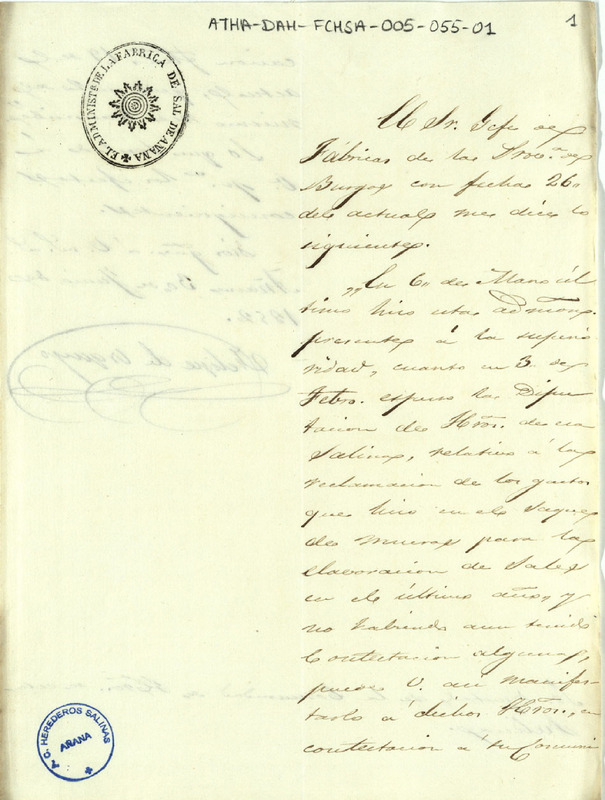 ATHA-DAH-FCHSA-005-055-01
1
EL ADMINIST.R DE LA FABRICA DE SAL DE AÑANA
El Sr. Gefe de
Fábricas de la Prov.a de
Burgos con fecha 26
del actual mes dice lo
siguiente.
„En 6 de Marzo úl
timo hizo esta admon.
presente á la superio
ridad, cuanto en 3. de
Febro. espuso la Dipu
tacion de Hros. de esa
Salinas, relativo á la
reclamacion de los gastos
que hizo en el saque
de mueras para la
elavoracion de Sales
en el último año, y
no habiendo aun tenido
Contestacion alguna,
puede V. asi manifes-
tarlo á dichos Hros., en
contestacion á su Comuni
C. HEREDEROS SALINAS
AÑANA